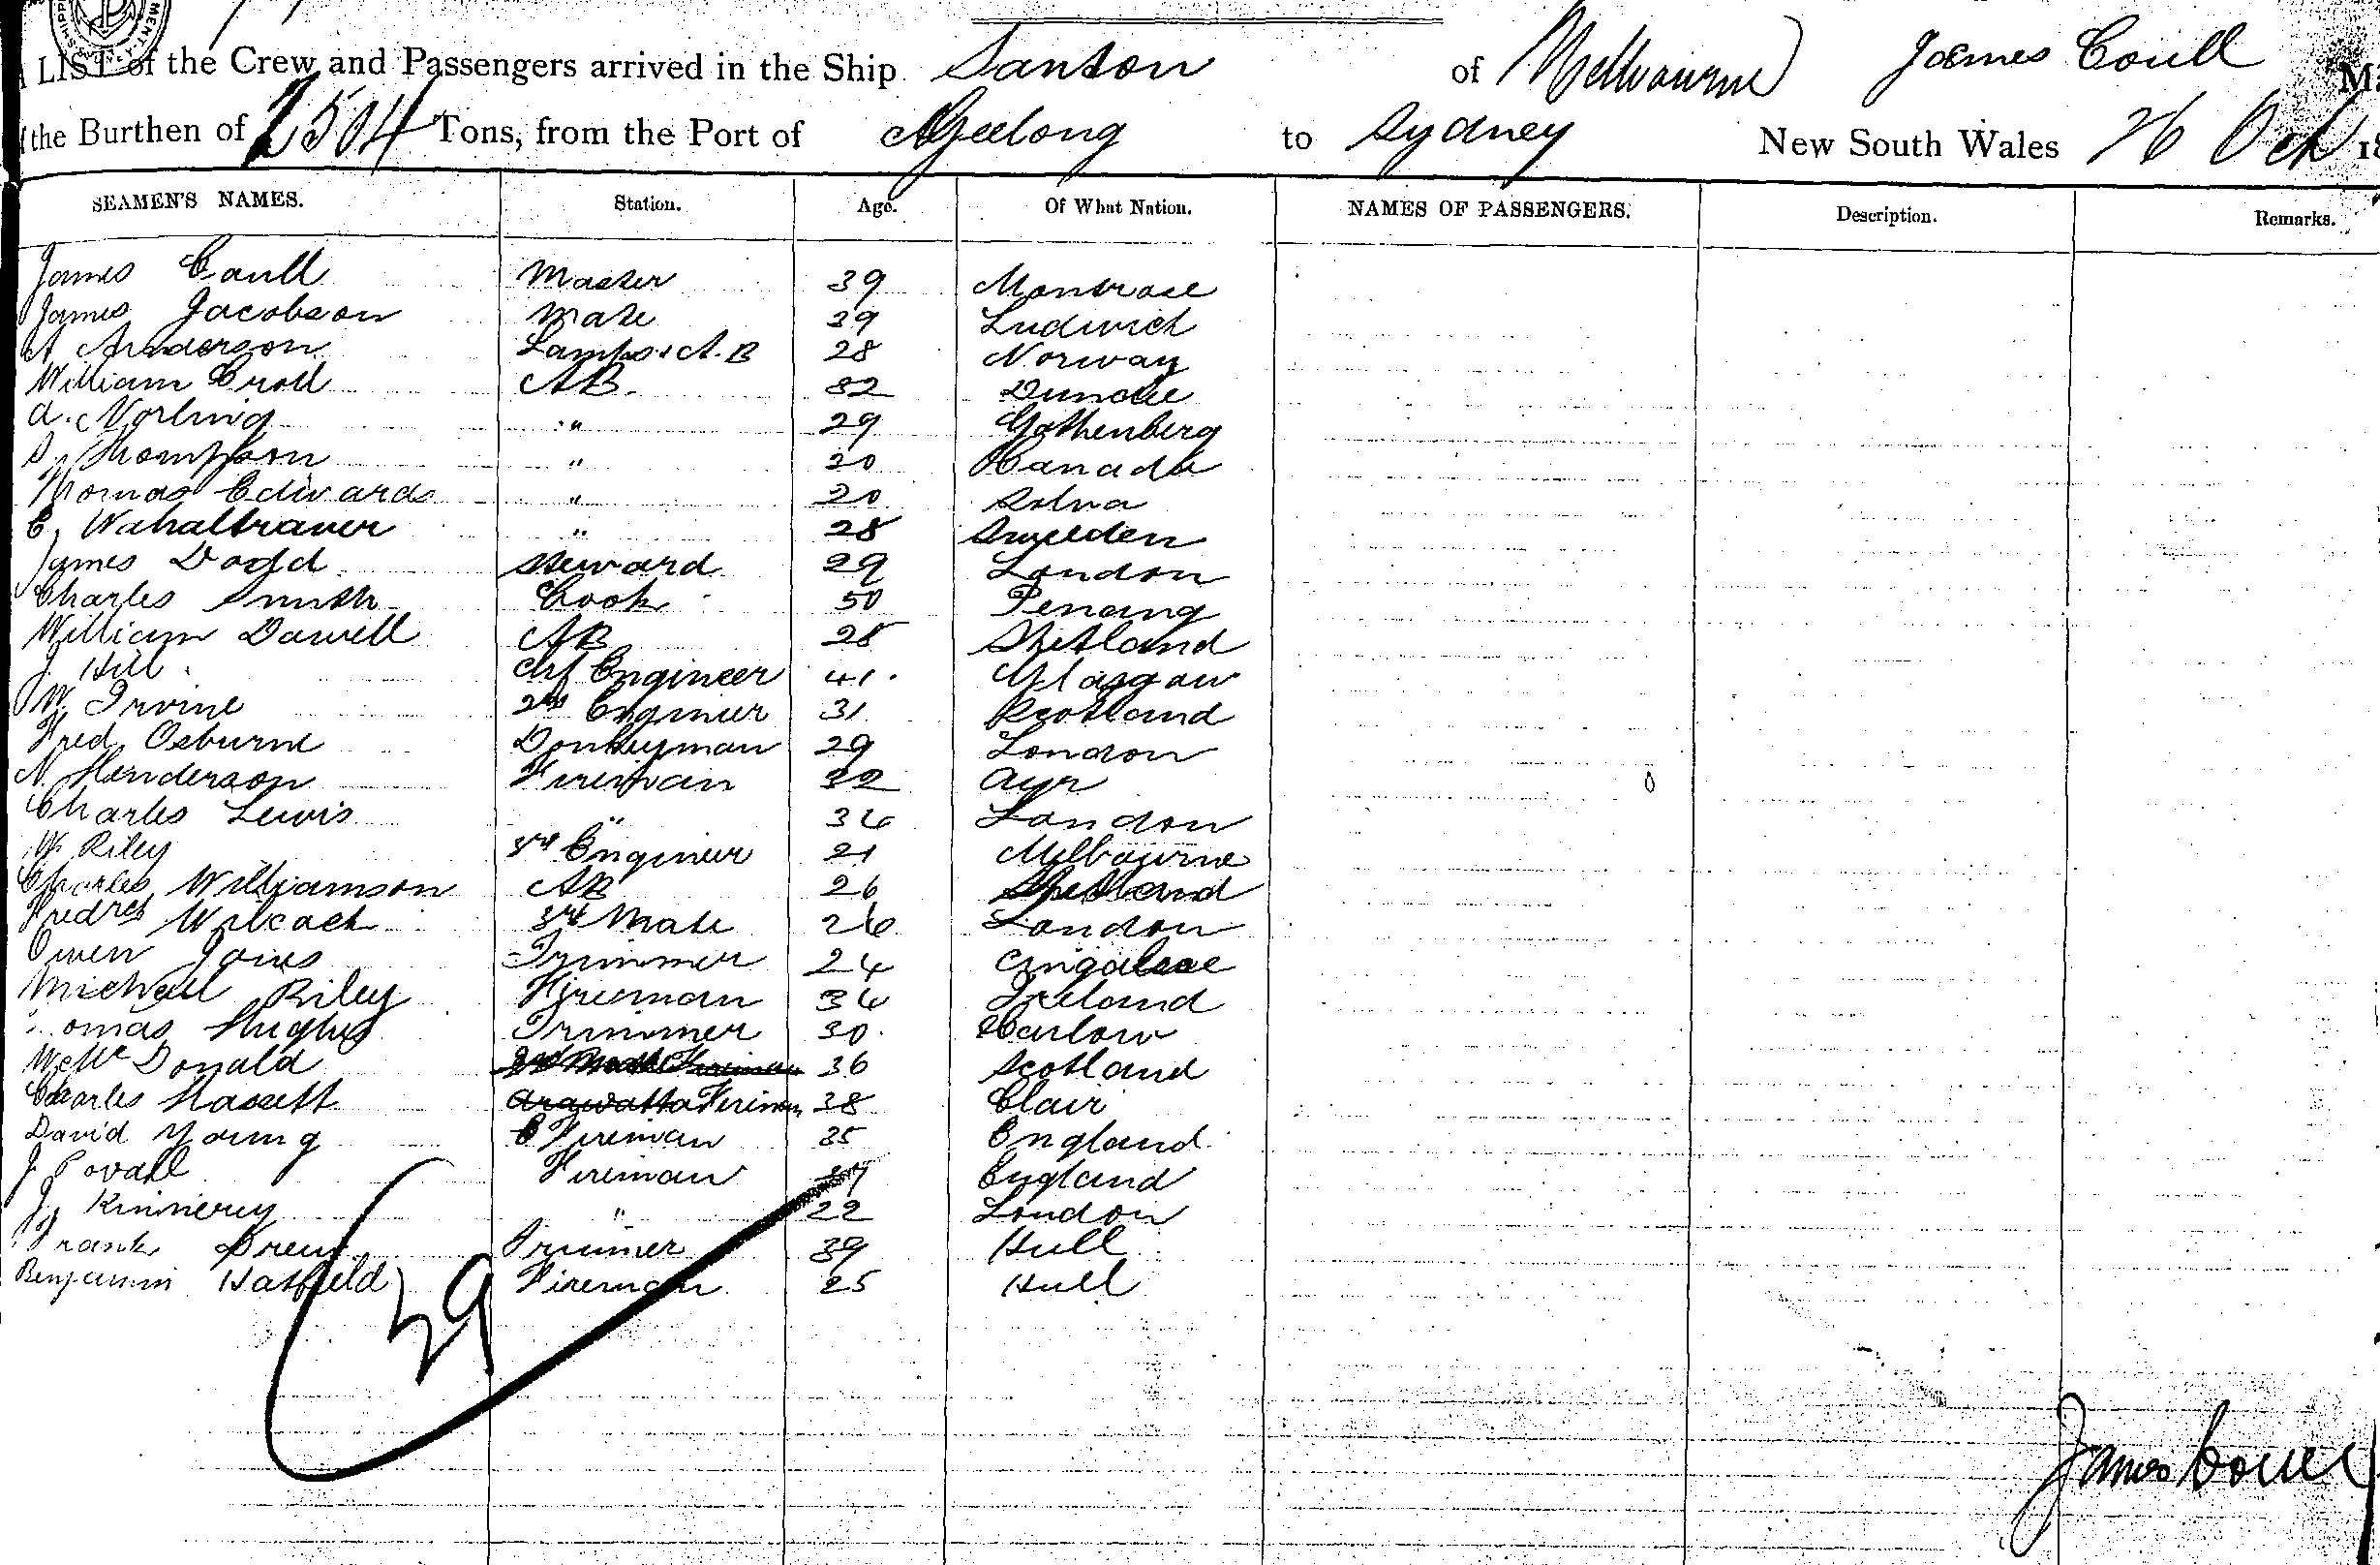 LIST of the Crew and Passengers arrived in the Ship Santon of Melbourne James Coull
the Burthen of 2504 Tons, from the Port of Geelong to Sydney New South Wales 26 Oct 18
SEAMEN'S NAMES. Station. Age. Of What Nation. NAMES OF PASSENGERS. Description. Remarks.
James Coull Master 39 Montrose
James Jacobson Mate 39 Ludwich
A Anderson Lamps & A.B 28 Norway
William Croll AB. 32 Dundee
A. Norling " 29 Gothenberg
S. Thompson " 20 Canada
Thomas Edwards " 20
C. Wahalstraver " 28 Sweeden
James Dodd Steward 29 London
Charles Smith Cook 50 Penang
William Dawell AB 28 Shetland
J Hill Chf Engineer 41. Glasgow
W. Irvine 2nd Engineer 31 Scotland
Fred Osburne Donkeyman 29 London
N. Henderson Fireman 32 Ayr
Charles Lewis " 36 London
W. Riley 3rd Engineer 21 Melbourne
Charles Williamson AB 26 Shetland
Fredrck Wilcock 3rd Mate 26 London
Owen Jones Trimmer 24 Cingalese
Michael Riley Fireman 34 Ireland
Thomas Hughes Trimmer 30. Carlow
Wm McDonald Fireman 36 Scotland
Charles Hassett Arawatta Fireman 38 Clair
David Young Fireman 35 England
J Povall Fireman England
J. Kinnerey " 22 London
Frank Drew Trimmer 39 Hull
Benjamin Hatfield Fireman 25 Hull
29
James Coull